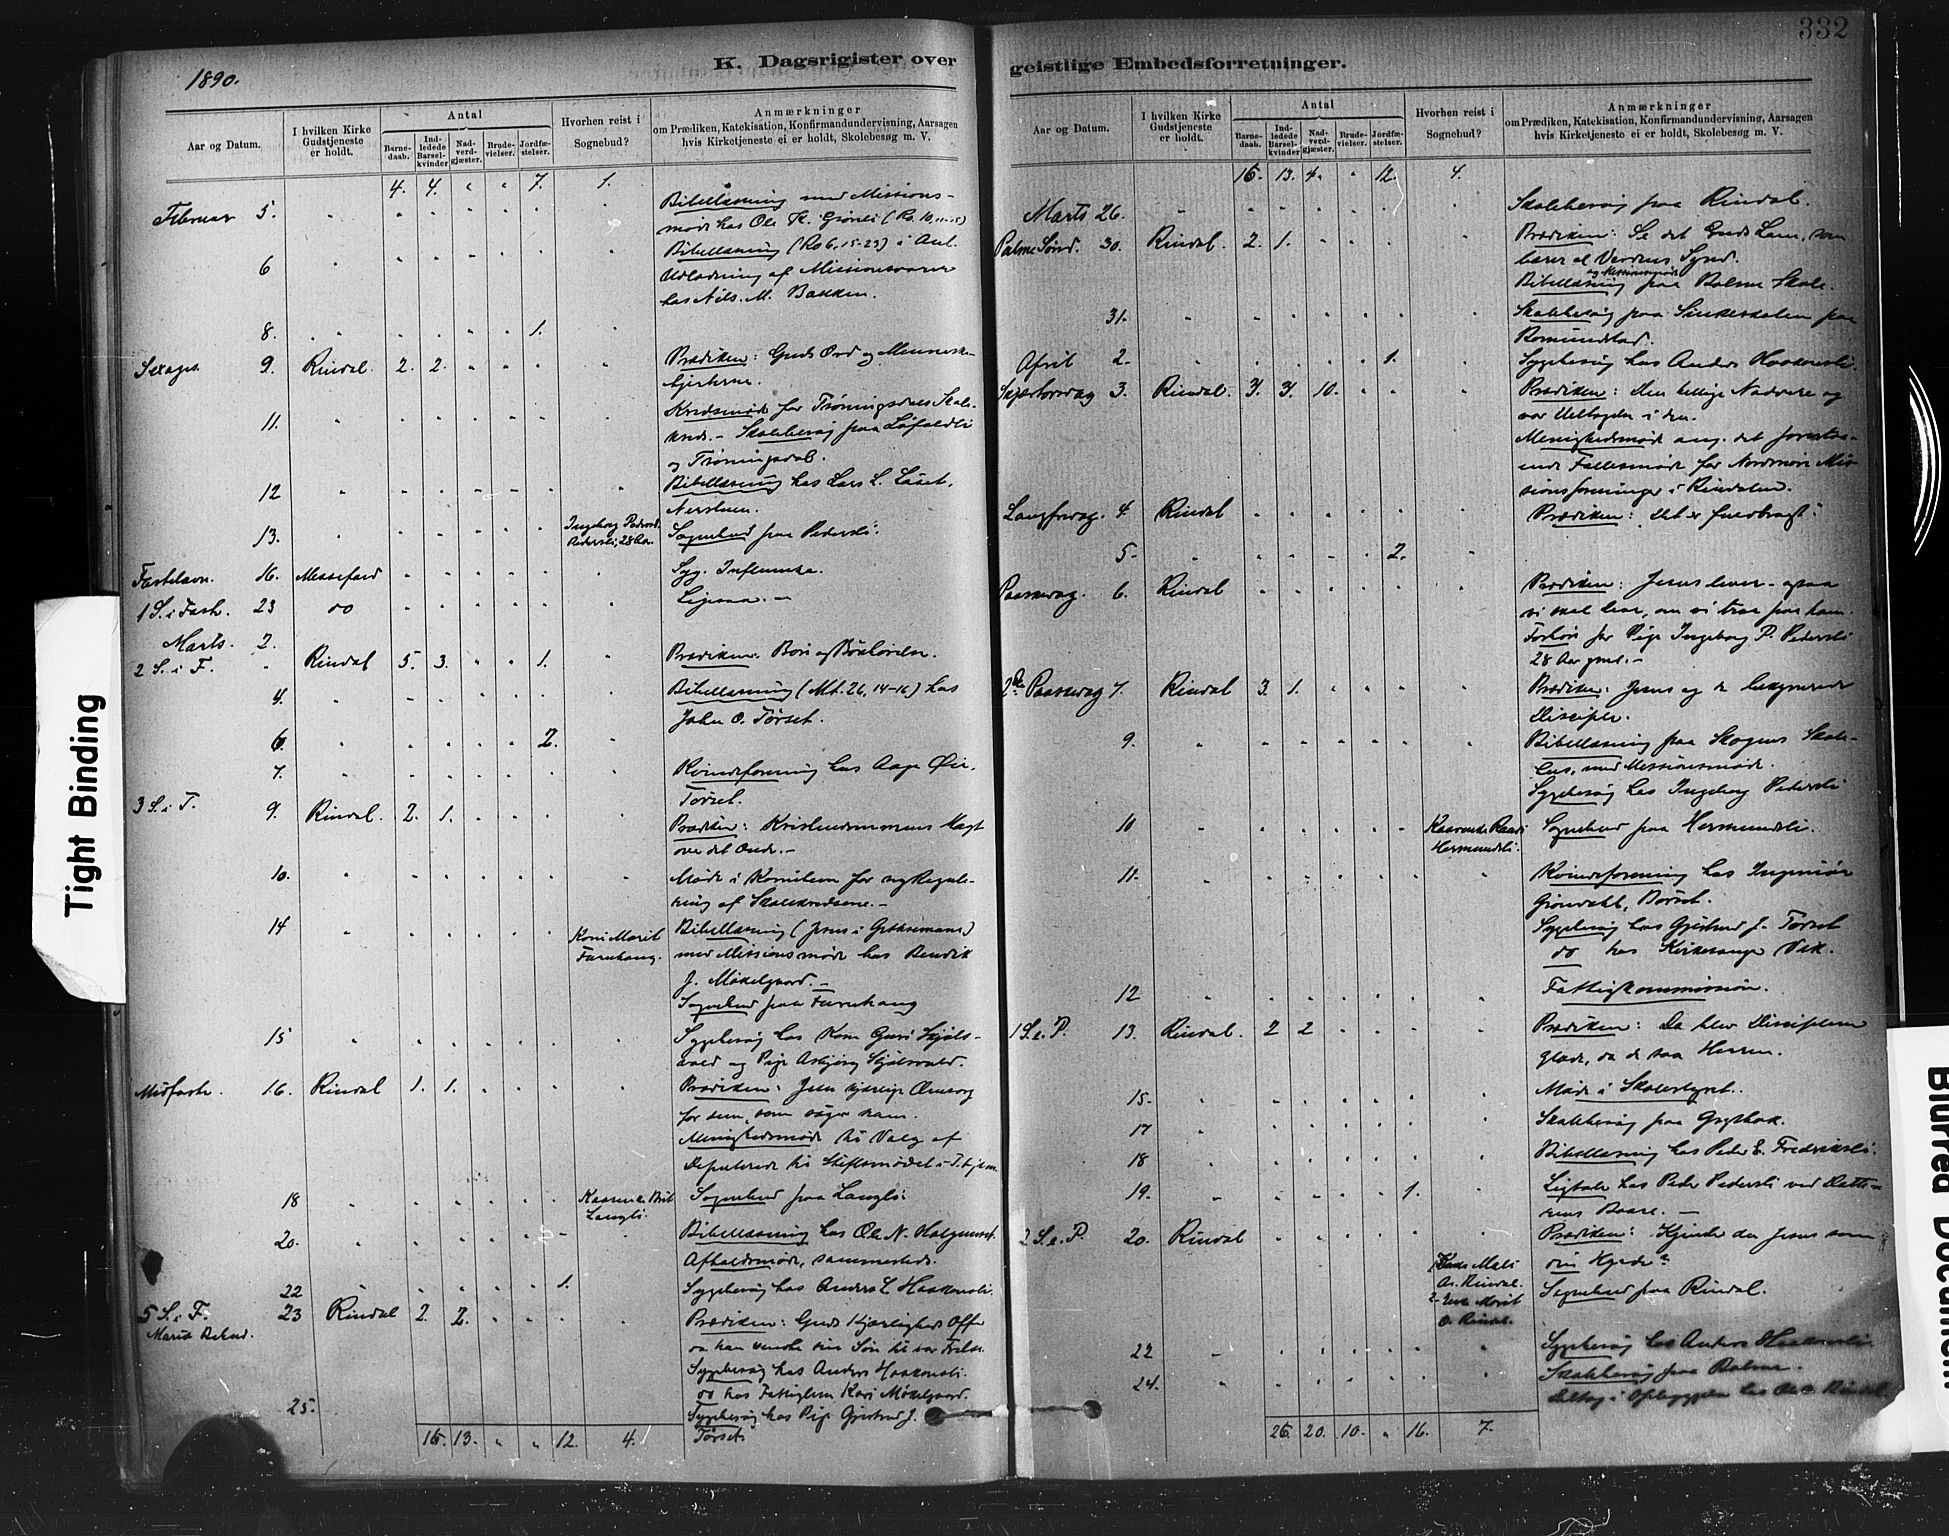 332
1890.
K. Dagsrigister over
geistlige Embedsforretninger.
Aar og Datum.
I hvilken Kirke Gudstjeneste er holdt.
Antal
Barnedaab.
Indledede Barselkvinder
Nadverdgjæster.
Brudevielser.
Jordfæstelser.
Hvorhen reist i Sognebud?
Anmærkninger
om Prædiken, Katekisation, Konfirmandundervisning, Aarsagen
hvis Kirketjeneste ei er holdt, Skolebesøg m. V.
4. 4. " " 7. 1.
Februar 5. Bibellæsning med Missions-
møde hos Ole
6 Bibellæsning (Ro 6, 15-23) i Anl.
Udlodning af Missionsvarer
hos Nils M. Bakken.
8. 1.
Sexages. 9. Rindal. 2. 2. Prædiken: Guds Ord og Menneske-
hjerterne.
11. Kredsmøde for Trøningsdals Skole-
kreds. - Skolebesøg paa Løfaldli
og Trøningsdal.
12 Bibellæsning hos Lars L. Løset,
13. Ingeborg Pedersd. Pedersli, 28 Aar. Sognebud paa Pedersli.
Fastelavn. 16. Messefald Syg. Influenza.
1 S. i Fast. 23 do Ligesaa. -
Marts. 2.
2 S. i F. " Rindal 5. 3. 1. Prædiken: Bøn og Bønhørelse.
4. Bibellæsning (Mt. 26, 14-16) hos
John O. Tørset.
6. 2.
7. Kvindeforening hos Aage Øie,
Tørset.
3 S. i F. 9. Rindal. 2. 1. Prædiken: Kristendommens Magt
over det Onde. -
10. Møde i Komiteen for ny Regule-
ring af Skolekredsene. -
14 Kone Marit Furuhaug. Bibellæsning (Jesus i Gethsemane)
med Missionsmøde hos Bendik
J. Møkelgaard. -
Sognebud paa Furuhaug
15 Sygebesøg hos Kone Guri Skjøls-
vold og Pige Asbjørg Skjølsvold.
Midfaste. 16. Rindal 1. 1. Prædiken: Jesu kjærlige Omsorg
for dem, som søger ham.
Menighedsmøde til Valg af
Deputerede til Stiftsmødet i T.hjem.
18 Kaarenke Brit Langli. Sognebud paa Langli.
20. Bibellæsning hos Ole N. Holgumset.
Afholdsmøde, sammesteds.
22 1. Sygebesøg hos Anders L. Haakensli.
5 S. i F. 23 Rindal 2. 2. Prædiken: Guds Kjærligheds Offer
Maria Bebud. da han sendte sin Søn til vor Frelse.
Sygebesøg hos Anders Haakensli.
do hos Fattiglem Kari Møkelgaard.
25. Sygebesøg hos Pige Gjertrud J.
Tørset.
15. 13. " " 12. 4.
Aar og Datum.
I hvilken Kirke Gudstjeneste er holdt.
Antal
Barnedaab.
Indledede Barselkvinder
Nadverdgjæster.
Brudevielser.
Jordfæstelser.
Hvorhen reist i Sognebud?
Anmærkninger
om Prædiken, Katekisation, Konfirmandundervisning, Aarsagen
hvis Kirketjeneste ei er holdt, Skolebesøg m. V.
15. 13. 4. " 12. 4.
Marts 26. Skolebesøg paa Rindal.
Palme Sønd. 30. Rindal. 2. 1. Prædiken: Se det Guds Lam, som
bærer al Verdens Synd.
Bibellæsning og Missionsmøde paa Bolme Skole.
31. Skolebesøg paa
Romundstad.
April 2. 1. Sygebesøg hos Anders Haakensli.
Skjærtorsdag 3. Rindal. 3. 3. 10. Prædiken: Den hellige Nadvere og
vor Deltagelse i den.
Menighedsmøde ang. det foresta-
ende Fællesmøde for Nordmøre Mis-
sionsforeninger i Rindalen.
Langfredag. 4. Rindal Prædiken: "Det er fuldbragt."
5. 2.
Paaskedag. 6. Rindal Prædiken: Jesus lever - ogsaa
vi skal leve, om vi tror paa ham.
Forbøn for Pige Ingeborg P. Pedersli
28 Aar gml. -
2den Paaskedag 7. Rindal 3. 1. Prædiken: Jesus og de bekymrede
Disciple.
9. Bibellæsning paa Skogens Skole-
hus, med Missionsmøde.
Sygebesøg hos Ingeborg Pedersli
10 Hermundsli. Sognebud paa Hermundsli.
11. Kvindeforening hos Ingeniør
Grøndahl, Børset.
Sygebesøg hos Gjertrud J. Tørset
do hos Kirkesanger Vik.
12 Fattigkommission.
1 S. e. P. 13. Rindal. 2 2 Prædiken: Da blev Disciplene
glade, da de saa Herren.
15. Møde i Skolestyret.
17 Skolebesøg paa Grytbak.
18 Bibellæsning hos Peder E. Fredriksli.
19. 1. Ligtale hos Peder Pedersli ved Datte-
rens Baare. -
2 S. e. P. 20. Rindal Prædiken: Kjender du Jesus som
din Hyrde?
Sognebud paa Rindal.
22 Sygebesøg hos Anders Haakensli.
24. Skolebesøg paa Bolme.
25. 20. 10. " 16. 7.
Tight Binding
Blurred Document